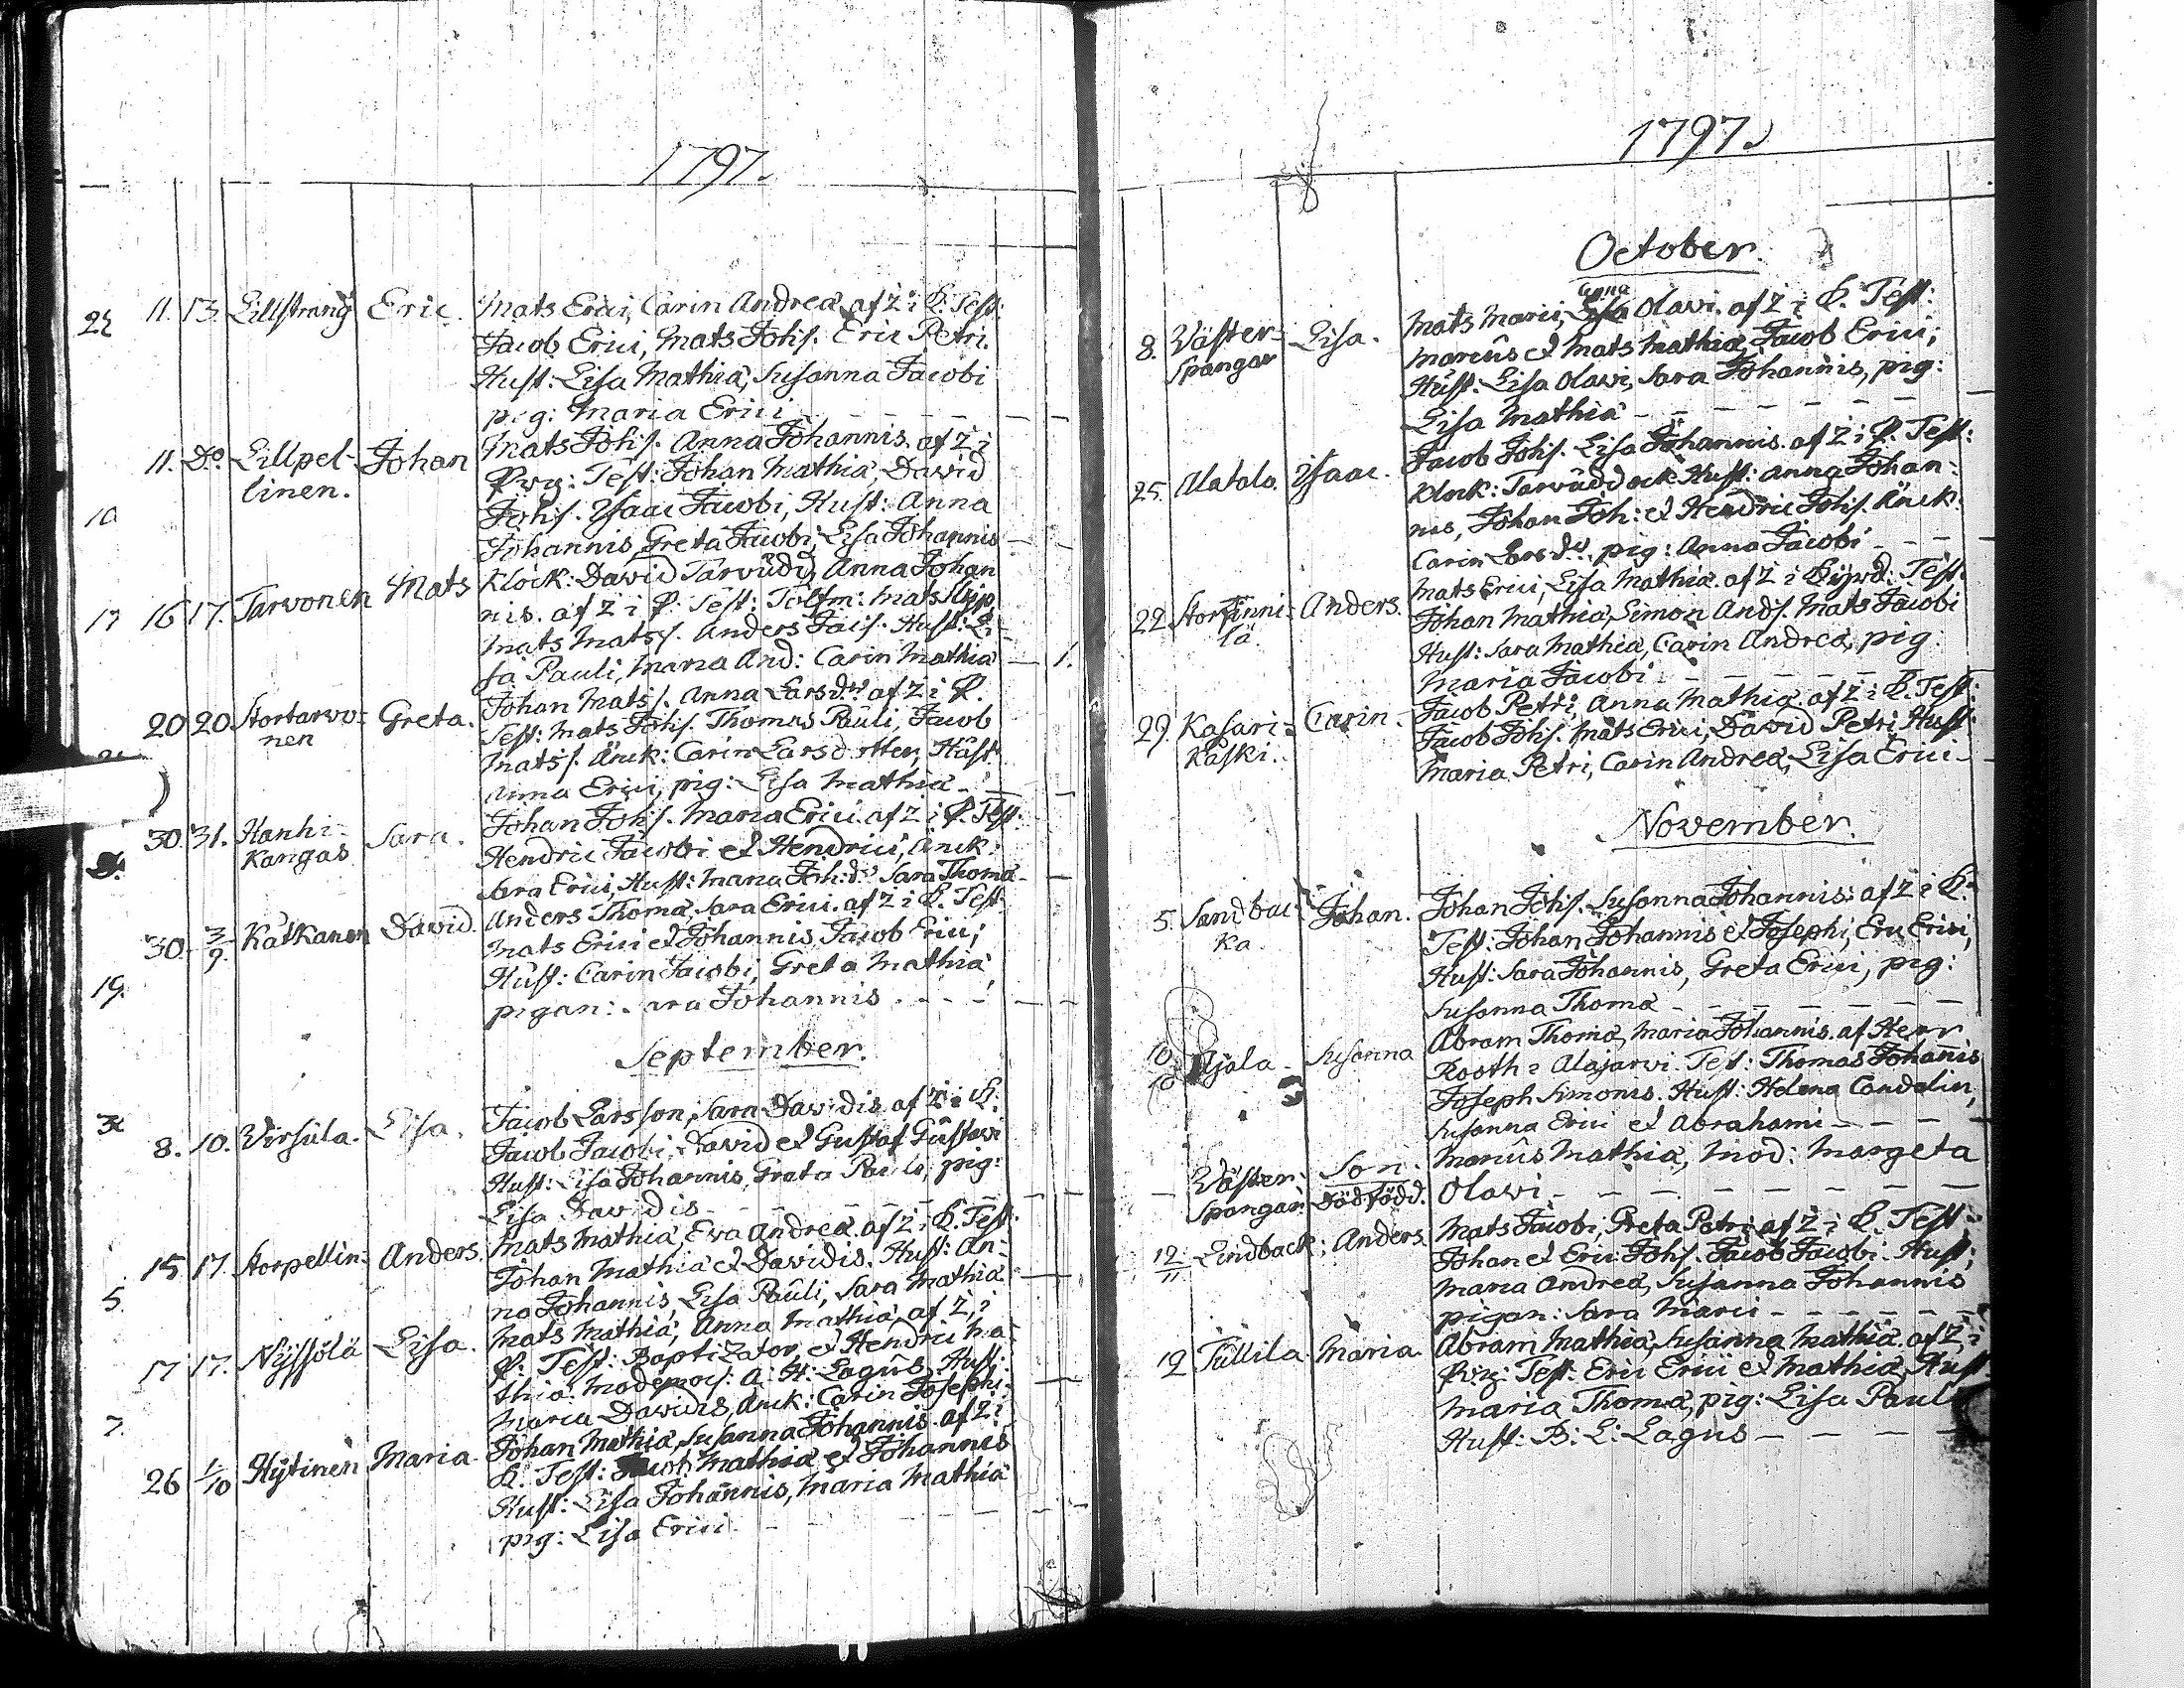 1797.
22 11. 13. Lillstrang Eric. Mats Erici, Carin Andreæ af Z i B. Test:
Jacob Erici, Mats Johs. Eric Petri.
Hust: Lisa Mathiæ, Susanna Jacobi
pig: Maria Erici
11. Do. Lillpel- Johan Mats Johs. Anna Johannis. af Z i
linen. Pig: Test: Johan Mathiæ, David
10 Johs. Ysaac Jacobi, Hust: Anna
Johannis, Greta Jacobi, Lisa Johannis
17 16 17. Tarvonen Mats Klock: David Tarvudd, Anna Johan
nis. af Z i P. Test: Tolfm: Mats
Mats Matss. Anders Hust: Li-
sa Pauli, Maria And: Carin Mathiæ 1.
20 20 Stortarvo- Greta. Johan Matss. Anna Larsdr af Z i P.
nen Test: Mats Johs. Thomas Pauli, Jacob
Matss. Änck: Carin Larsdotter, Hust:
Anna Erici, pig: Lisa Mathiæ
30. 31. Hanhi- Sara. Johan Johs. Maria Erici. af Z i P. Test:
kangas Hendric Jacobi et Hendrici, Änck:
Sara Erici, Hust: Maria Joh:dr Sara Thomæ
30. 3/9. Katkanen David. Anders Thomæ, Sara Erici. af Z i B. Test:
Mats Erici et Johannis, Jacob Erici;
Hust: Carin Jacobi, Greta Mathiæ
19. pigan: ara Johannis
September.
8. 10. Virsula. Lisa. Jacob Larsson, Sara Davidis af Z i B.
Jacob Jacobi, David et Gustaf Gustavi
Hust: Lisa Johannis, Greta Pauli, pig:
Lisa Davidis
15 17. Storpellin: Anders. Mats Mathiæ, Eva Andreæ. af Z i B. Test:
Johan Mathiæ et Davidis. Hust: An-
5. na Johannis, Lisa Pauli, Sara Mathiæ
17 17. Nyssölä Lisa. Mats Mathiæ, Anna Mathiæ, af Z i
P: Test: Baptizator, et Hendric Ma-
thiæ. Mademois: A: H: Lagus, Hust:
7. Maria Davidis, Änck: Carin Josephi:
26 1/10 Hytinen Maria. Johan Mathiæ, Susanna Johannis. af Z i
B. Test: Jacob Mathiæ et Johannes
Hust: Lisa Johannis, Maria Mathiæ
pig: Lisa Erici.
1797.
October.
Anna
8. Väster- Lisa. Mats Marci, Lisa Olavi. af Z i B. Test:
Spangar Marcus et Mats Mathiæ, Jacob Erici;
Hust: Lisa Olavi, Sara Johannis, pig:
Lisa Mathiæ
25. Alatalo. Ysaac. Jacob Johs. Lisa Johannis. af Z i P. Test:
Klock: Tarvudd ock Hust: Anna Johan-
nis, Johan Joh: et Hendric Johs. Änck:
Carin Larsdr. pig: Anna Jacobi
22. Storfinni- Anders. Mats Erici, Lisa Mathiæ. af Z i Test:
lä. Johan Mathiæ, Simon Ands. Mats Jacobi
Hust: Sara Mathiæ, Carin Andreæ, pig:
Maria Jacobi
29. Kasari- Carin. Jacob Petri, Anna Mathiæ af Z i B. Test:
kaski. Jacob Johs. Mats Erici, David Petri, Hust:
Maria Petri, Carin Andreæ, Lisa Erici
November.
5. Sandbac- Johan. Johan Johs. Susanna Johannis. af Z i B.
ka. Test: Johan Johannis et Josephi, Eric Erici,
Hust: Sara Johannis, Greta Erici, pig:
Susanna Thomæ
10. Äjälä Susanna Abram Thomæ, Maria Johannis. af Herr
10 Rooth i Alajarvi. Test: Thomas Johannis
Joseph Simonis. Hust: Helena Candelin,
Susanna Erici et Abrahami
Väster- Son. Marcus Mathiæ, Mod: Margeta
Spangar. Dödfödd. Olavi
12/11 Lindback: Anders. Mats Jacobi, Greta Petri af Z i B. Test:
Johan et Eric Johs. Jacob Jacobi. Hust;
Maria Andreæ, Susanna Johannis
pigan: Sara Marci
19 Tullila Maria Abram Mathiæ, Susanna Mathiæ. af Z i
Test: Eric Erici et Mathiæ, Hust:
Maria Thomæ, pig: Lisa Paul
Hust: B: L: Lagus